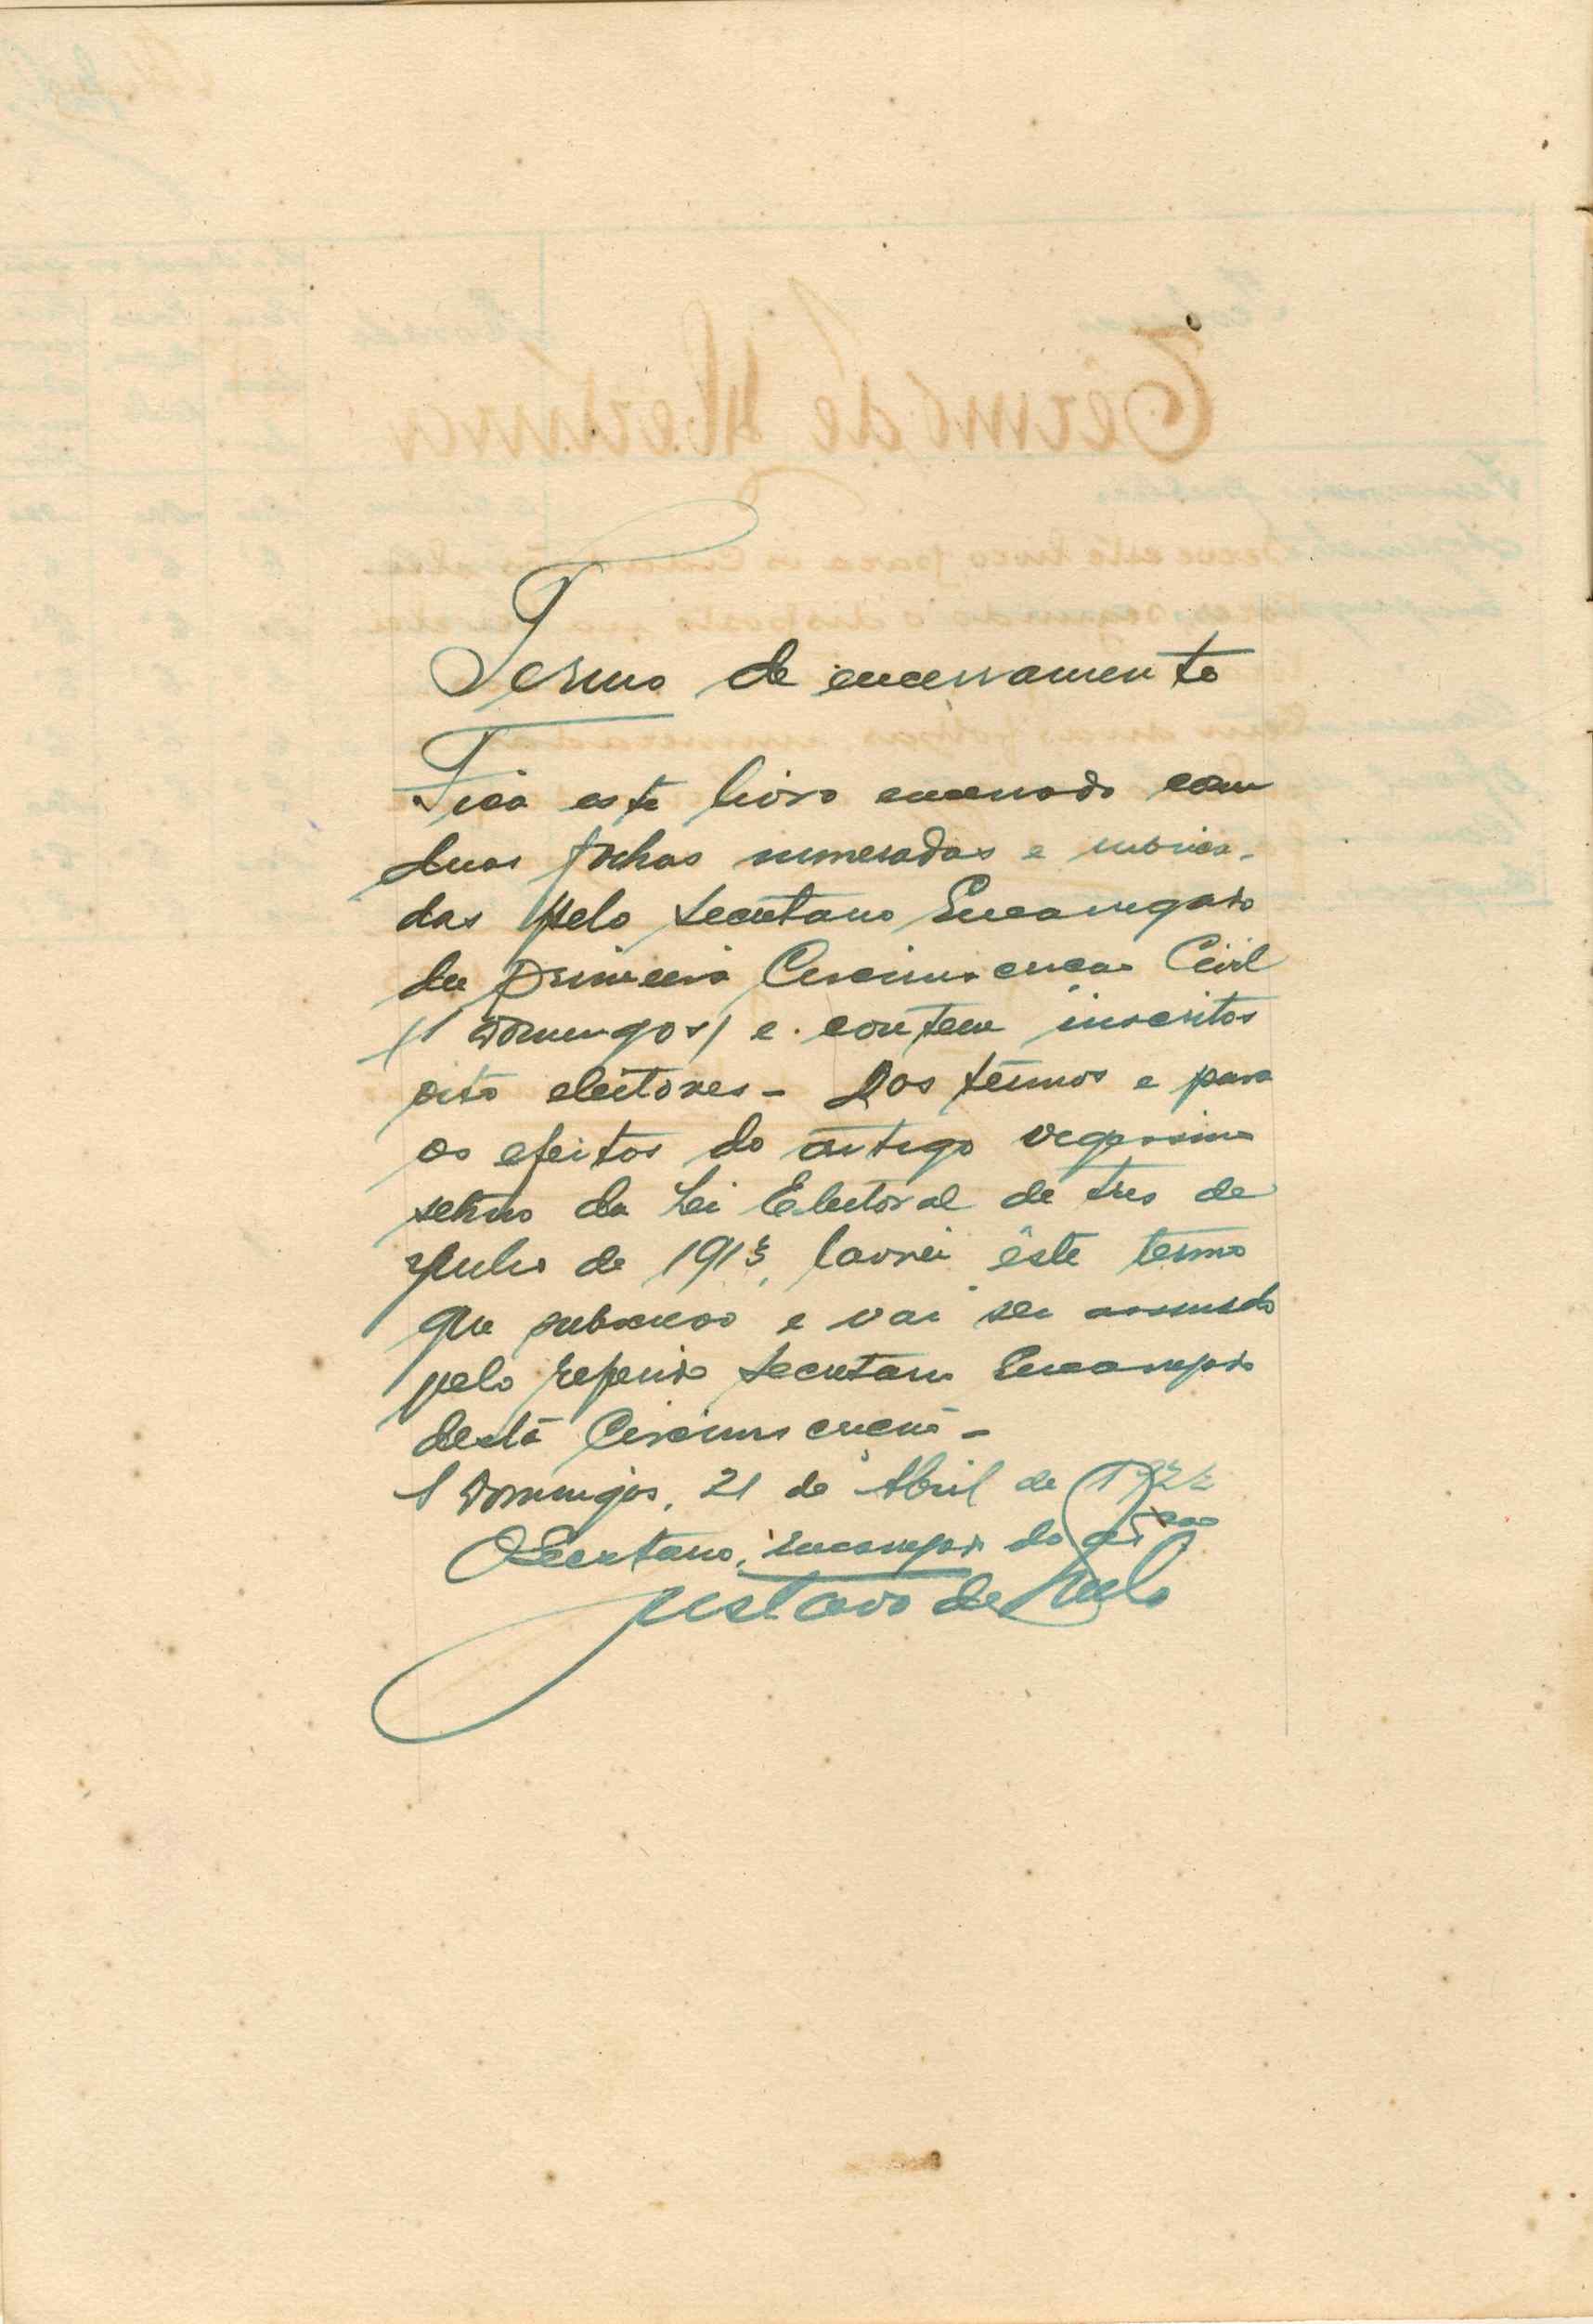 Termo de encerramento
Fica este livro encerrado com
duas folhas numeradas e rubrica-
das pelo Secretario Encarregado
da primeira Circunscrição Civil
(S Domingos) e contem inscritos
oito eleitores - Nos têrmos e para
os efeitos do artigo vigessimo
setimo da Lei Eleitoral de tres de
Julho de 1913, lavrei êste termo
que subscrevo e vai ser assinado
pelo referido Secretario Encarregado
desta Circunscrição -
S Domingos, 21 de Abril de 1922
O Secretario, encarregado da
Gustavo de Melo
Têrmo de Abertura